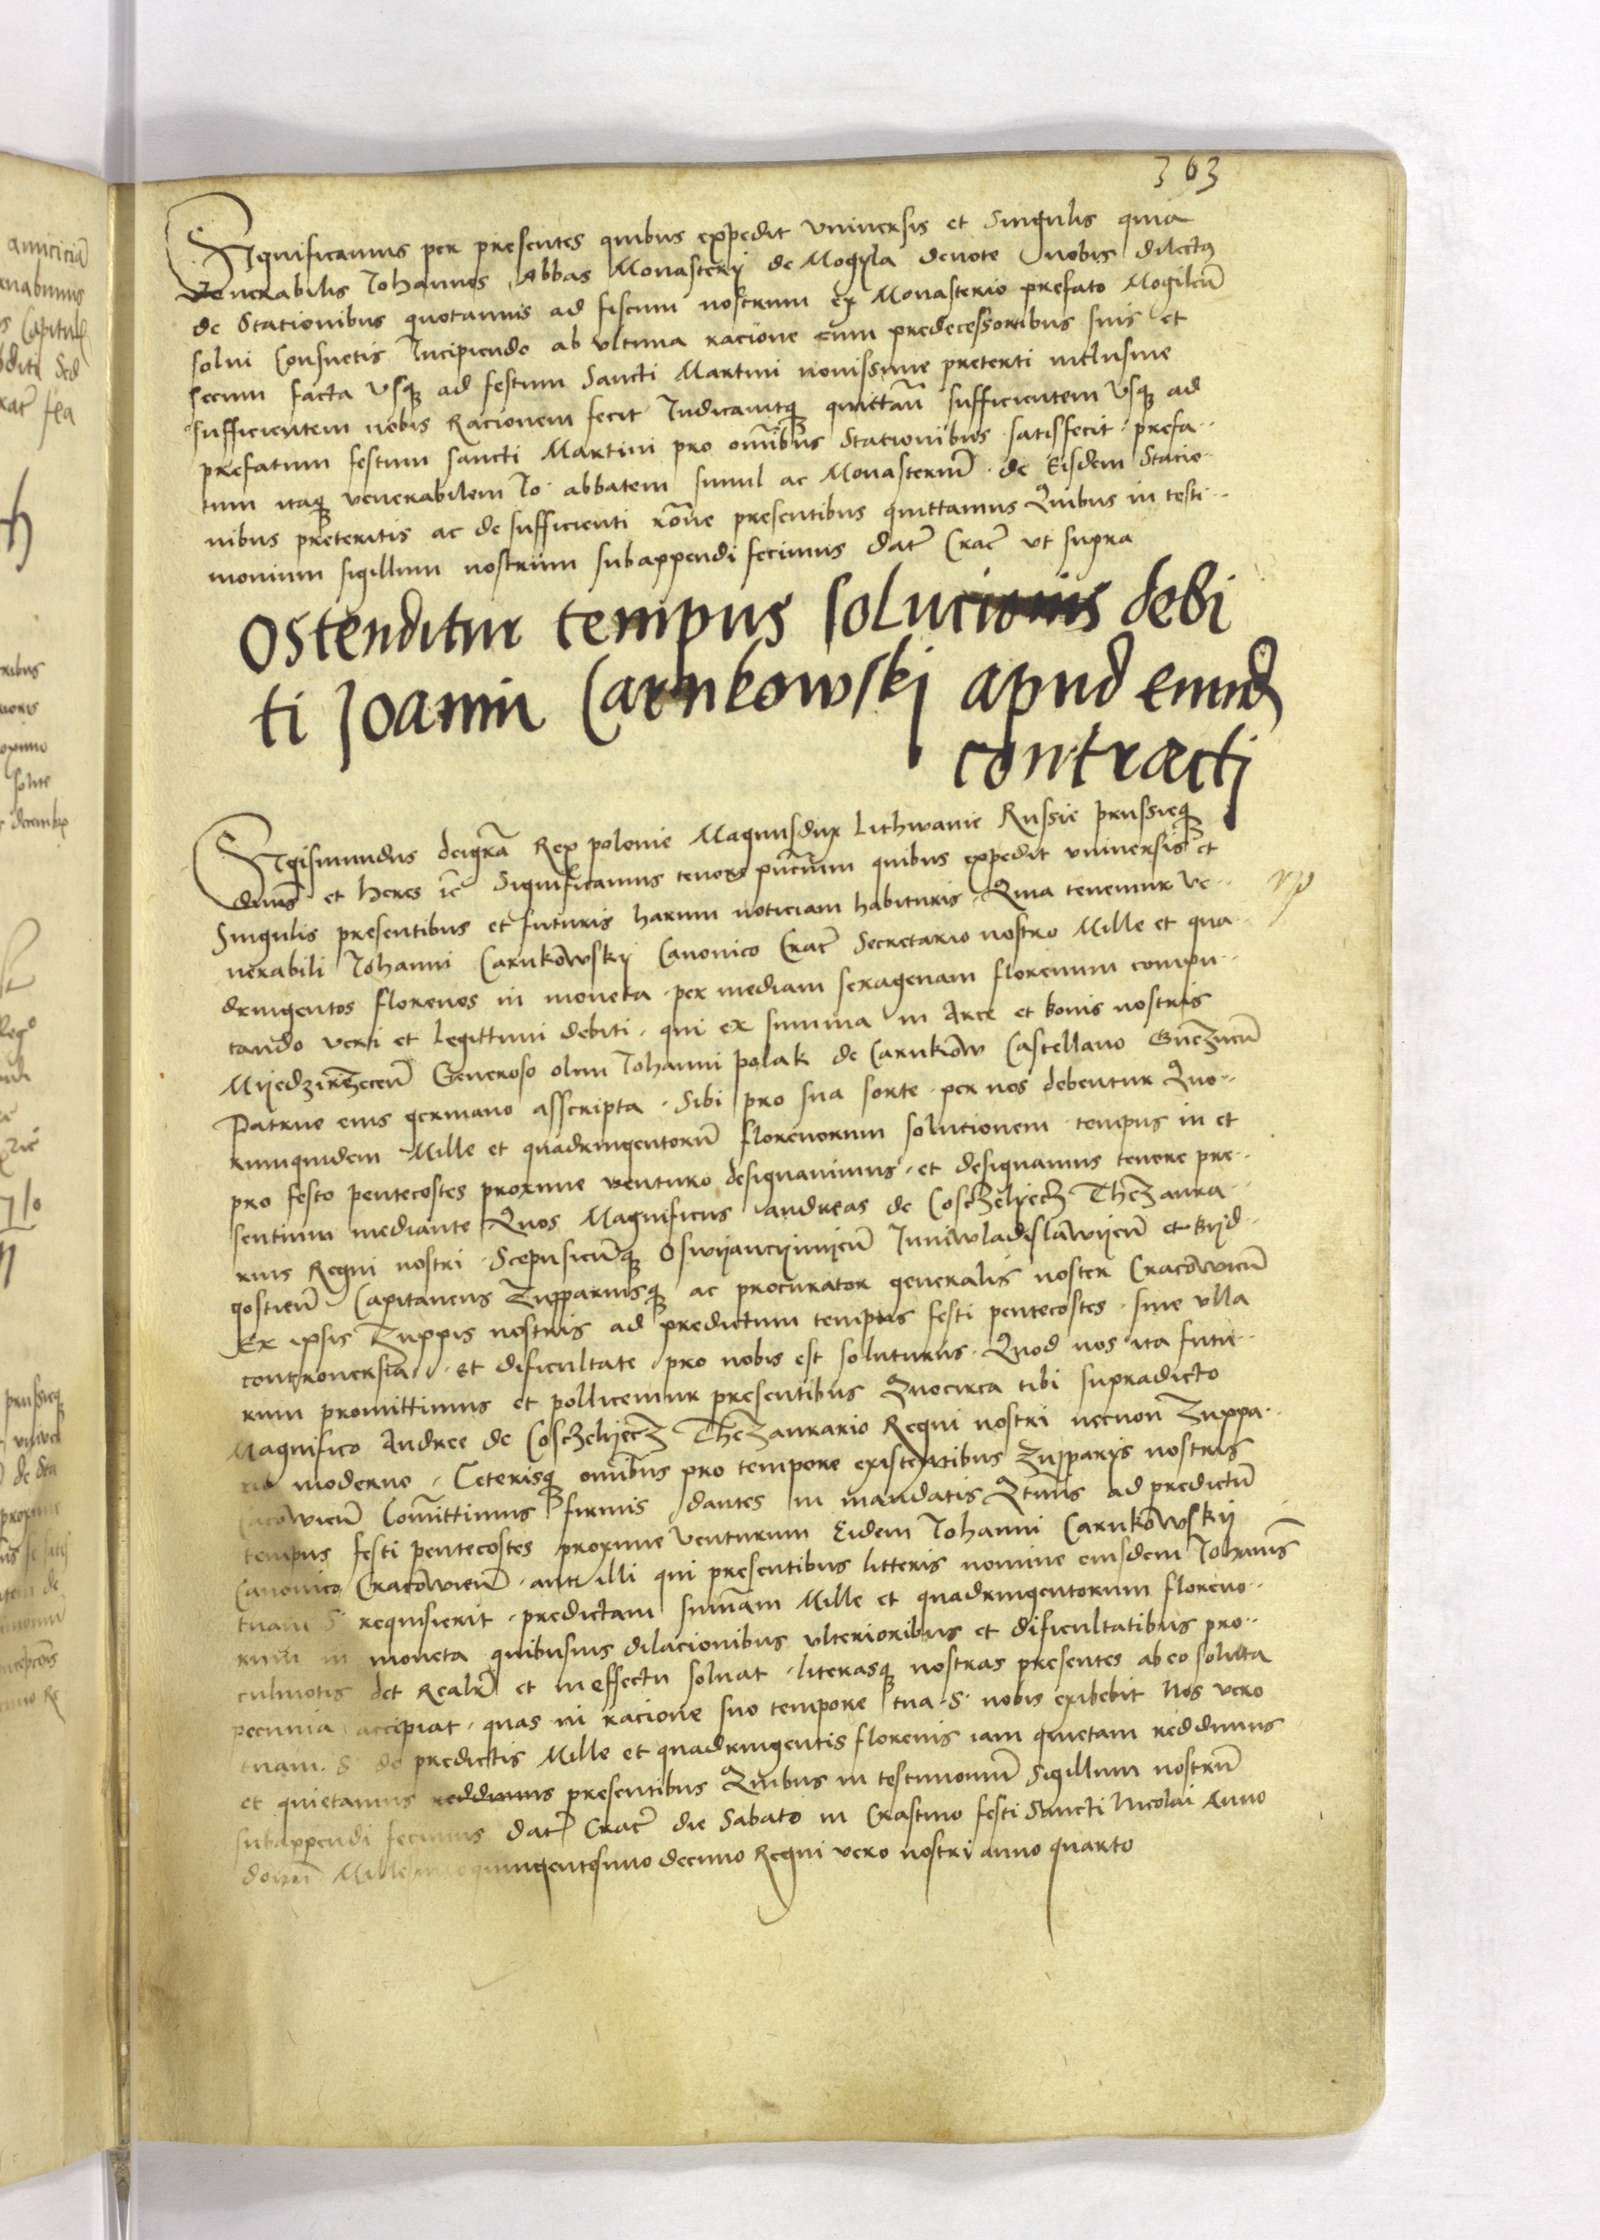 363
Significamus per presentes quibus expedit vniuersis et Singulis quia
Venerabilis Johannes Abbas Monasterij de Mogyla deuote nobis dilectus
de Stationibus quotannis ad fiscum nostrum ex Monasterio prefato Mogileñ
solui Consuetis Incipiendo ab vltima racione cum predecessoribus suis et
secum facta vsq ad festum Sancti Martini nouissime preteriti inclusiue
sufficientem nobis Racionem fecit Indicauitq quittañ sufficientem vsq ad
prefatum festum sancti Martini pro om̃ibus Stationibus satisfecit prefa
tum itaq venerabilem Jo abbatem simul ac Monasteriũ de Eisdem Statio
nibus preteritis ac de sufficienti rõne presentibus quittamus Quibus in testi
monium sigillum nostrum subappendi fecimus Dat Crac vt supra
Ostenditur tempus solucionis debi
ti Joanni Carnkowskj apud eund
contractj
Sigismundus dei grã Rex polonie Magnusdux Lithwanie Russie prussieq
dnus et heres ic Significamus tenore pñcium quibus expedit vniuersis et
Singulis presentibus et futuris harum noticiam habituris Quia tenemur ve
nerabili Johanni Carnkowskij Canonico Crac Secretario nostro Mille et qua
dringentos florenos in moneta per mediam sexagenam florenum compu
tando veri et legittimi debiti qui ex summa in Arce et bonis nostris
Myedzirzeceñ Generoso olim Johanni polak de Carnkow Castellano Gneznen̄
Patruo eius germano asscripta Sibi pro sua sorte per nos debentur Quo
rumquidem Mille et quadringentorũ florenorum solutionem tempus in et
pro festo pentecostes proxime venturo designauimus et designamus tenore pre
sentium mediante Quos Magnificus andreas de Cosczelyecz Thezaura
rius Regni nostri Scepusieñq Oswyancyimyeñ Juniwladislawyeñ et Byd
gostieñ Capitaneus Zuppariusq ac procurator generalis noster Cracowieñ
Ex ipsis Zuppis nostris ad predictum tempus festi pentecostes sine vlla
controuersia et dificultate pro nobis est soluturus Quod nos ita futu
rum promittimus et pollicemur presentibus Quocirca tibi supradicto
Magnifico Andree de Cosczelyecz Thezaurario Regni nostri necnon Zuppa
rio moderno Ceterisq om̃ibus pro tempore existentibus Zupparijs nostris
Cracowieñ Com̃ittimus firmis dantes in mandatis Qtinus ad predictũ
tempus festi pentecostes proxime Venturum Eidem Johanni Carnkowskij
Canonico Cracowieñ aut illi qui presentibus litteris nomine eiusdem Johannis
tuam S requisierit predictam summam Mille et quadringentorum floreno
rum in moneta quibusuis dilacionibus vlterioribus et dificultatibus pro
culmotis det Realr et in effectu soluat literasq nostras presentes ab eo soluta
pecunia accipiat quas in racione suo tempore tua S nobis exibebit Nos vero
tuam S de predictis Mille et quadringentis florenis iam quietam reddimus
et quietamus reddimus presentibus Quibus in testimoniũ Sigillum nostrũ
subappendi fecimus Dat Crac die Sabato in Crastino festi Sancti Nicolai Anno
domi Millesimo quingentesimo decimo Regni vero nostri anno quarto